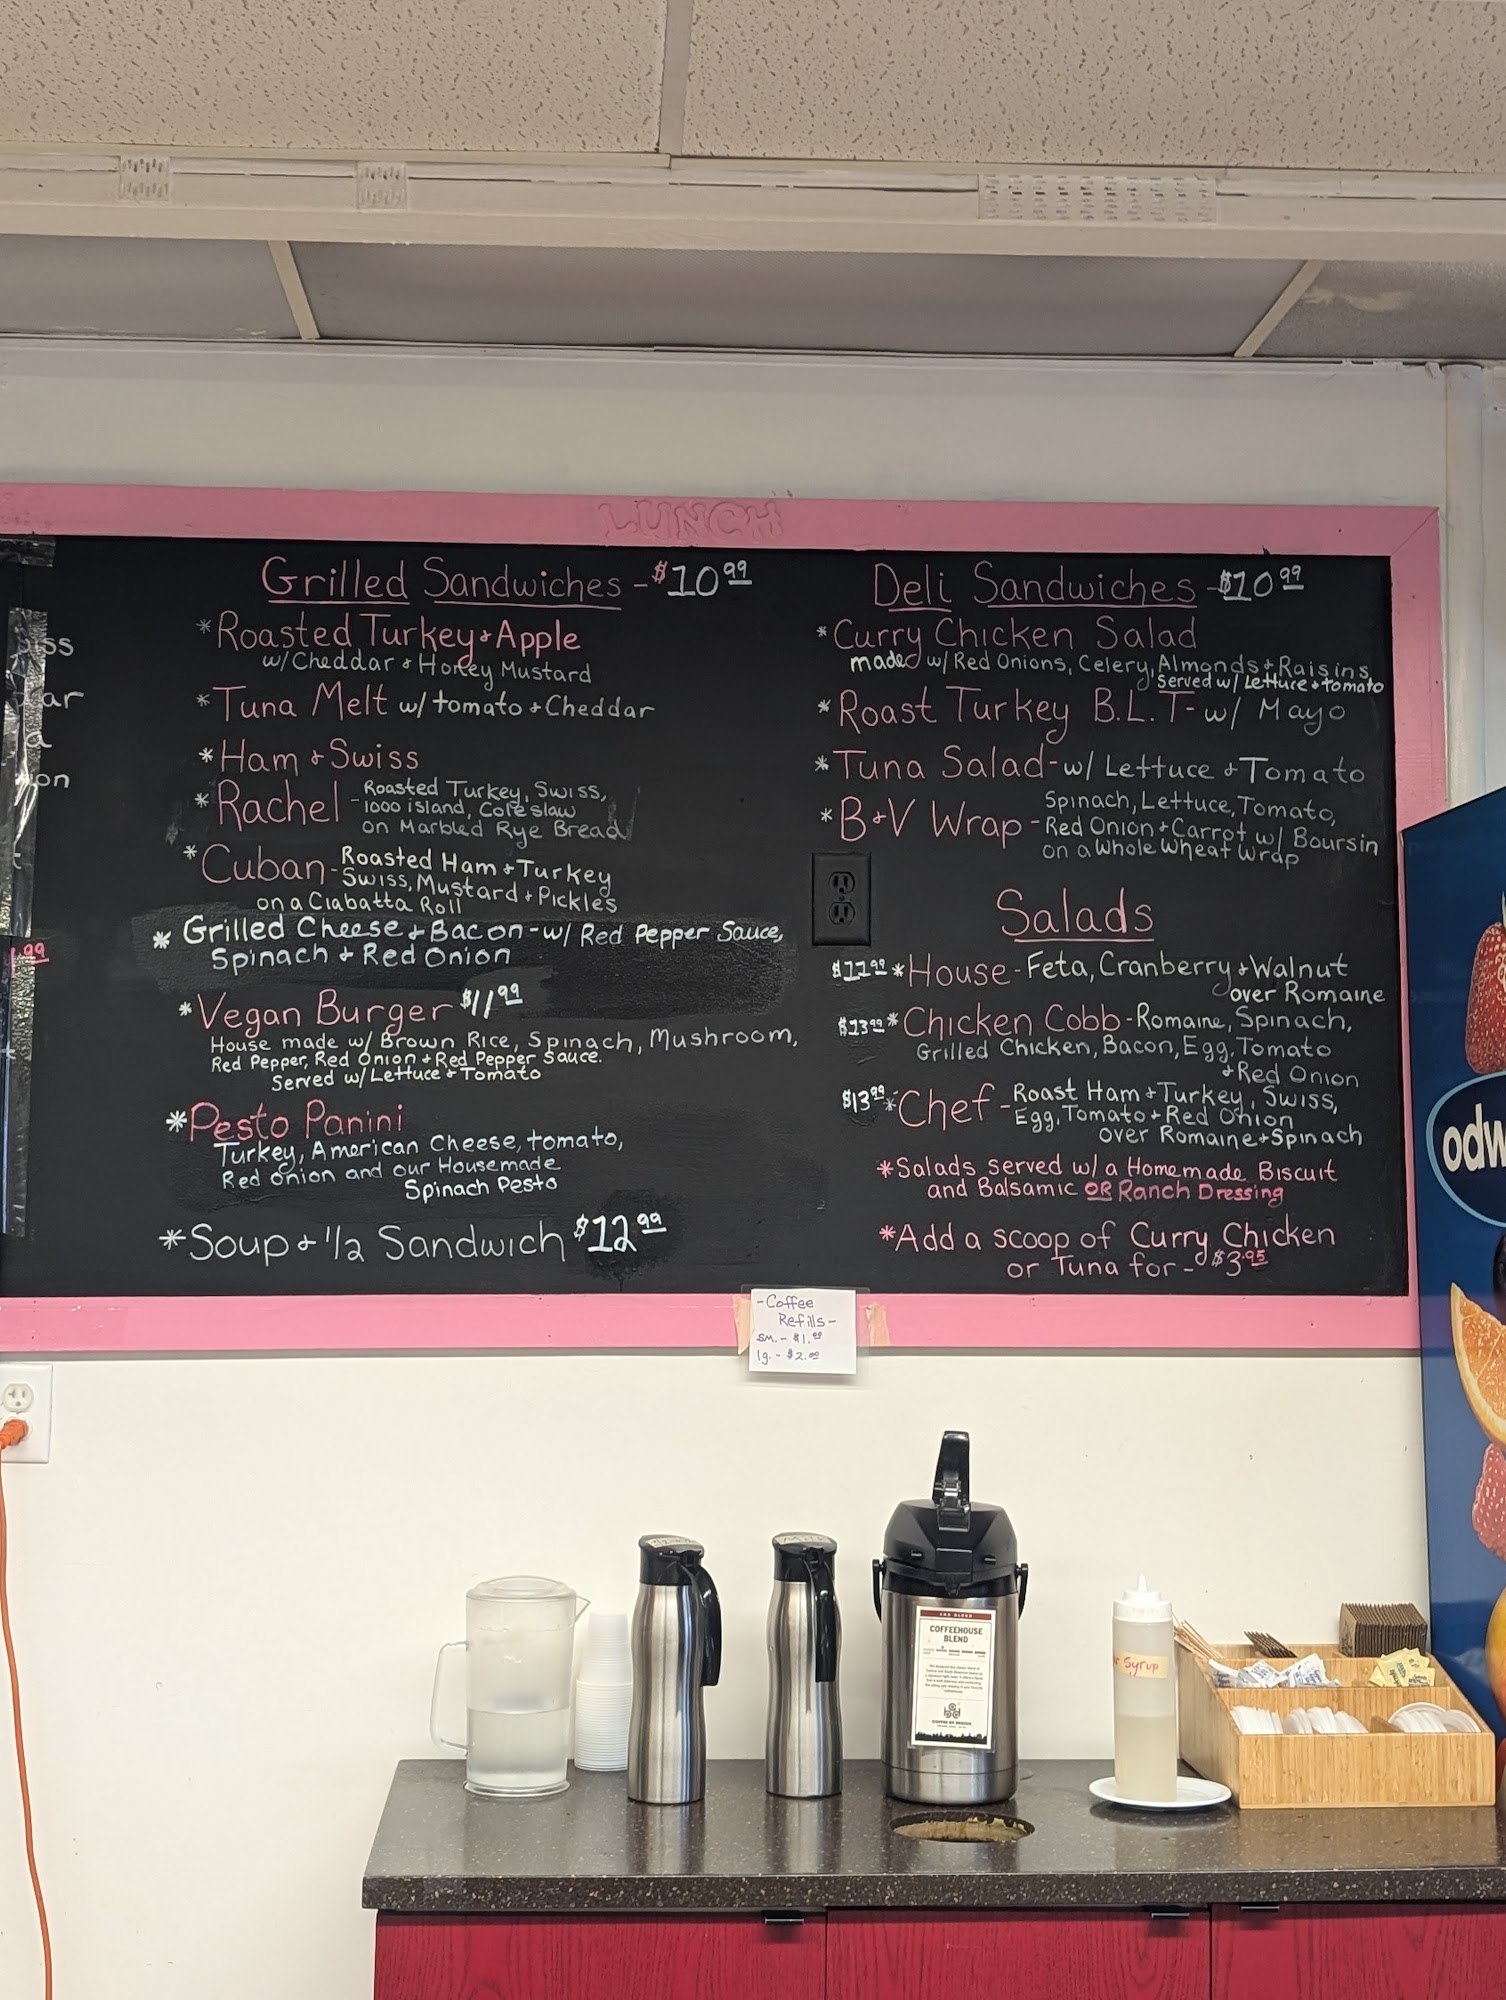 LUNCH
Grilled Sandwiches - $10.99
* Roasted Turkey + Apple
w/ Cheddar + Honey Mustard
* Tuna Melt w/ tomato + Cheddar
* Ham + Swiss
* Rachel - Roasted Turkey, Swiss,
1000 island, Coleslaw
on Marbled Rye Bread
* Cuban - Roasted Ham + Turkey
Swiss, Mustard + Pickles
on a Ciabatta Roll
* Grilled Cheese + Bacon - w/ Red Pepper Sauce,
Spinach + Red Onion
* Vegan Burger $11.99
House made w/ Brown Rice, Spinach, Mushroom,
Red Pepper, Red Onion + Red Pepper Sauce.
Served w/ Lettuce + Tomato
* Pesto Panini
Turkey, American Cheese, tomato,
Red onion and our Housemade
Spinach Pesto
* Soup + 1/2 Sandwich $12.99
Deli Sandwiches - $10.99
* Curry Chicken Salad
made w/ Red Onions, Celery, Almonds + Raisins
Served w/ Lettuce + tomato
* Roast Turkey B.L.T - w/ Mayo
* Tuna Salad - w/ Lettuce + Tomato
* B+V Wrap - Spinach, Lettuce, Tomato,
Red Onion + Carrot w/ Boursin
on a Whole Wheat Wrap
Salads
$11.99 * House - Feta, Cranberry + Walnut
over Romaine
$13.99 * Chicken Cobb - Romaine, Spinach,
Grilled Chicken, Bacon, Egg, Tomato
+ Red Onion
$13.99 * Chef - Roast Ham + Turkey, Swiss,
Egg, Tomato + Red Onion
over Romaine + Spinach
* Salads served w/ a Homemade Biscuit
and Balsamic OR Ranch Dressing
* Add a scoop of Curry Chicken
or Tuna for - $3.95
- Coffee
Refills -
sm. - $1.00
lg. - $2.00
odw
COFFEEHOUSE
BLEND
COFFEE BY DESIGN
Syrup